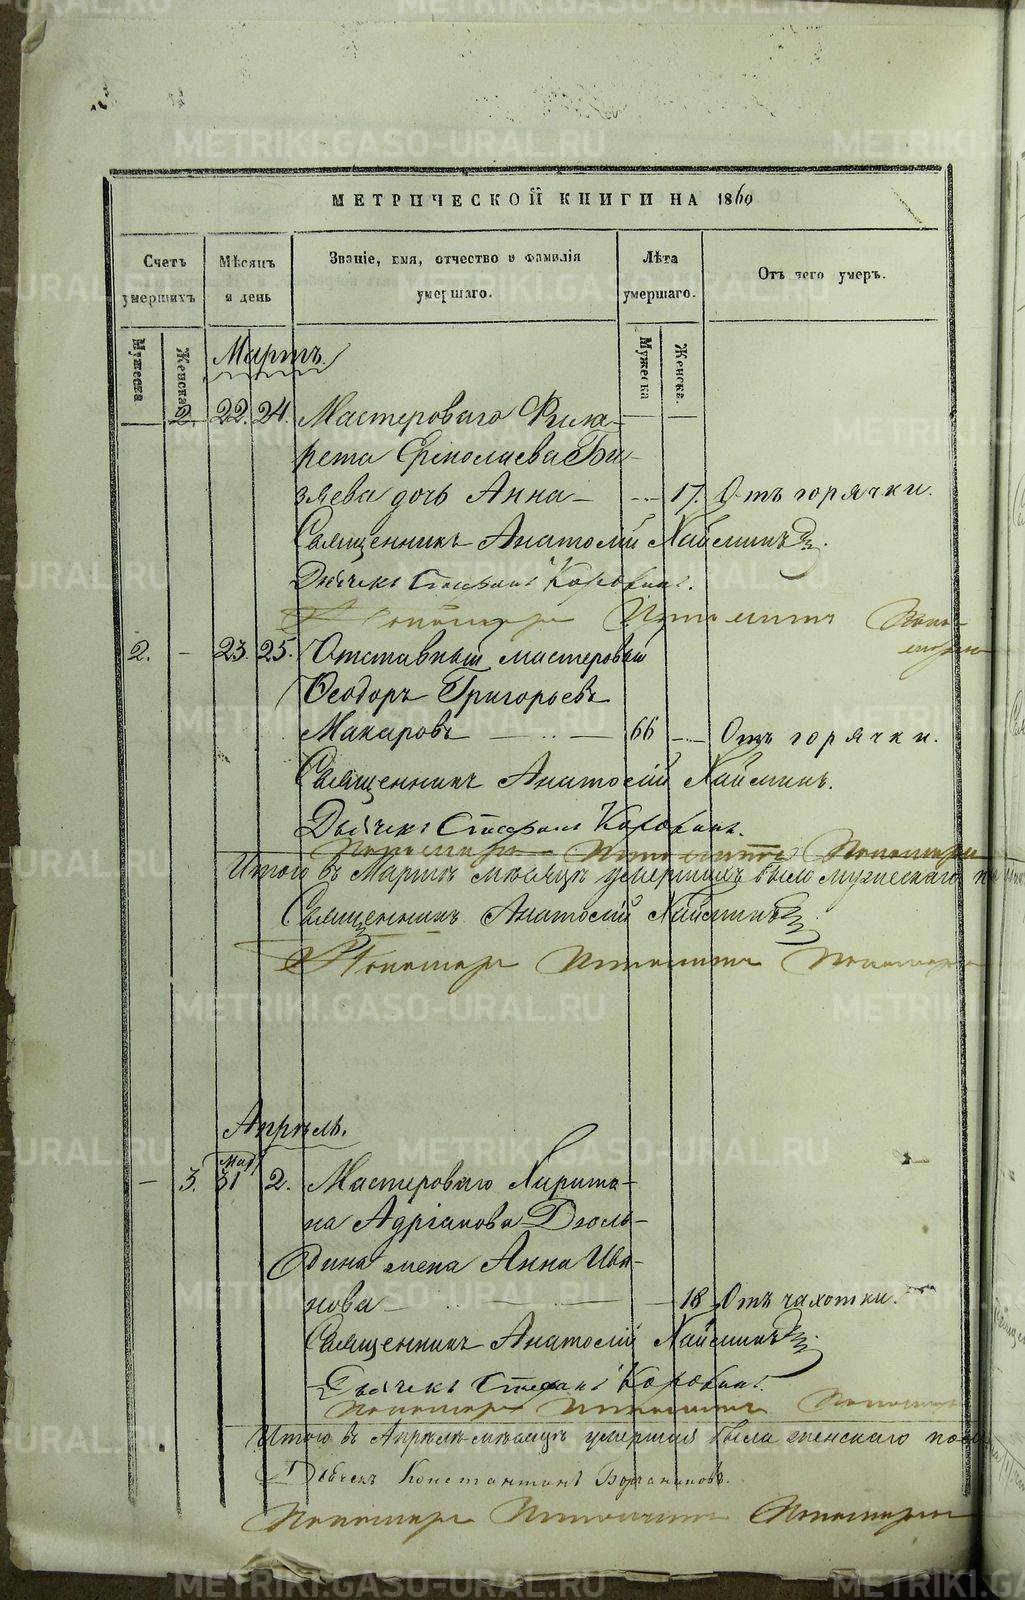 МЕТРИЧЕСКОЙ КНИГИ НА 1860
Счетъ умершихъ
Мѣсяцъ и день
Званіе, имя, отчество и фамилія умершаго.
Лѣта умершаго.
Отъ чего умеръ.
Мужеска
Женска
Мужеска
Женска.
Мартъ.
2. 22. 24. Мастероваго Фила-
рета Ермолаева
дочь Анна — 17. Отъ горячки.
Священникъ Анатолій
Дьячекъ Стефанъ Коровинъ.
Пономарь
2. — 23. 25. Отставный мастеровый
Ѳеодоръ Григорьевъ
Макаровъ — 66 — Отъ горячки.
Священникъ Анатолій
Дьячекъ Стефанъ Коровинъ.
Пономарь
Итого въ Мартѣ мѣсяцѣ умершихъ было мужескаго
Священникъ Анатолій
Пономарь
Апрѣль.
Мар
— 3. 31 2. Мастероваго Харито-
на Адріанова
дина жена Анна Ива-
нова — 18 Отъ чахотки.
Священникъ Анатолій
Дьячекъ Стефанъ Коровинъ.
Пономарь
Итого въ Апрѣлѣ мѣсяцѣ умершая была женскаго пола
Дьячекъ Константинъ
Пономарь
METRIKI.GASO-URAL.RU